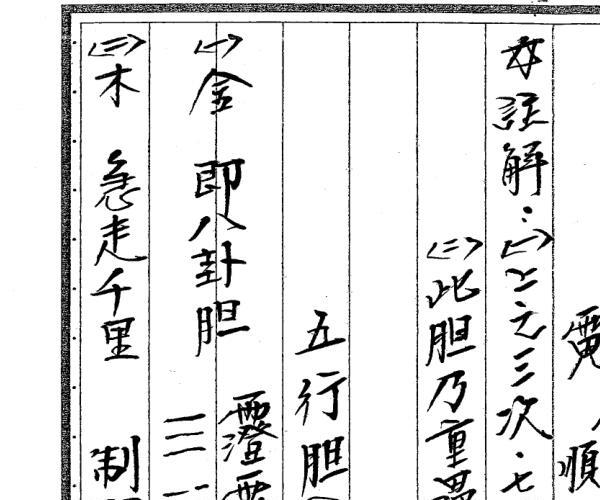 順
女註解：(一)上元三次．七
(二)此胆乃重
五行胆
(一)金　即八卦胆
(二)木　急走千里　制